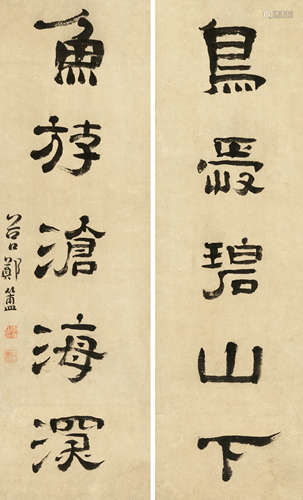 鳥愛碧山下
魚游滄海深
谷口鄭簠